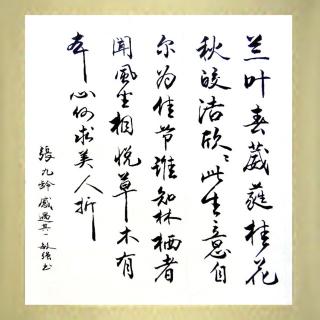 兰叶春葳蕤桂花
秋皎洁欣〻此生意自
尔为佳节谁知林栖者
闻风坐相悦草木有
本心何求美人折
張九龄感遇其一敏强书